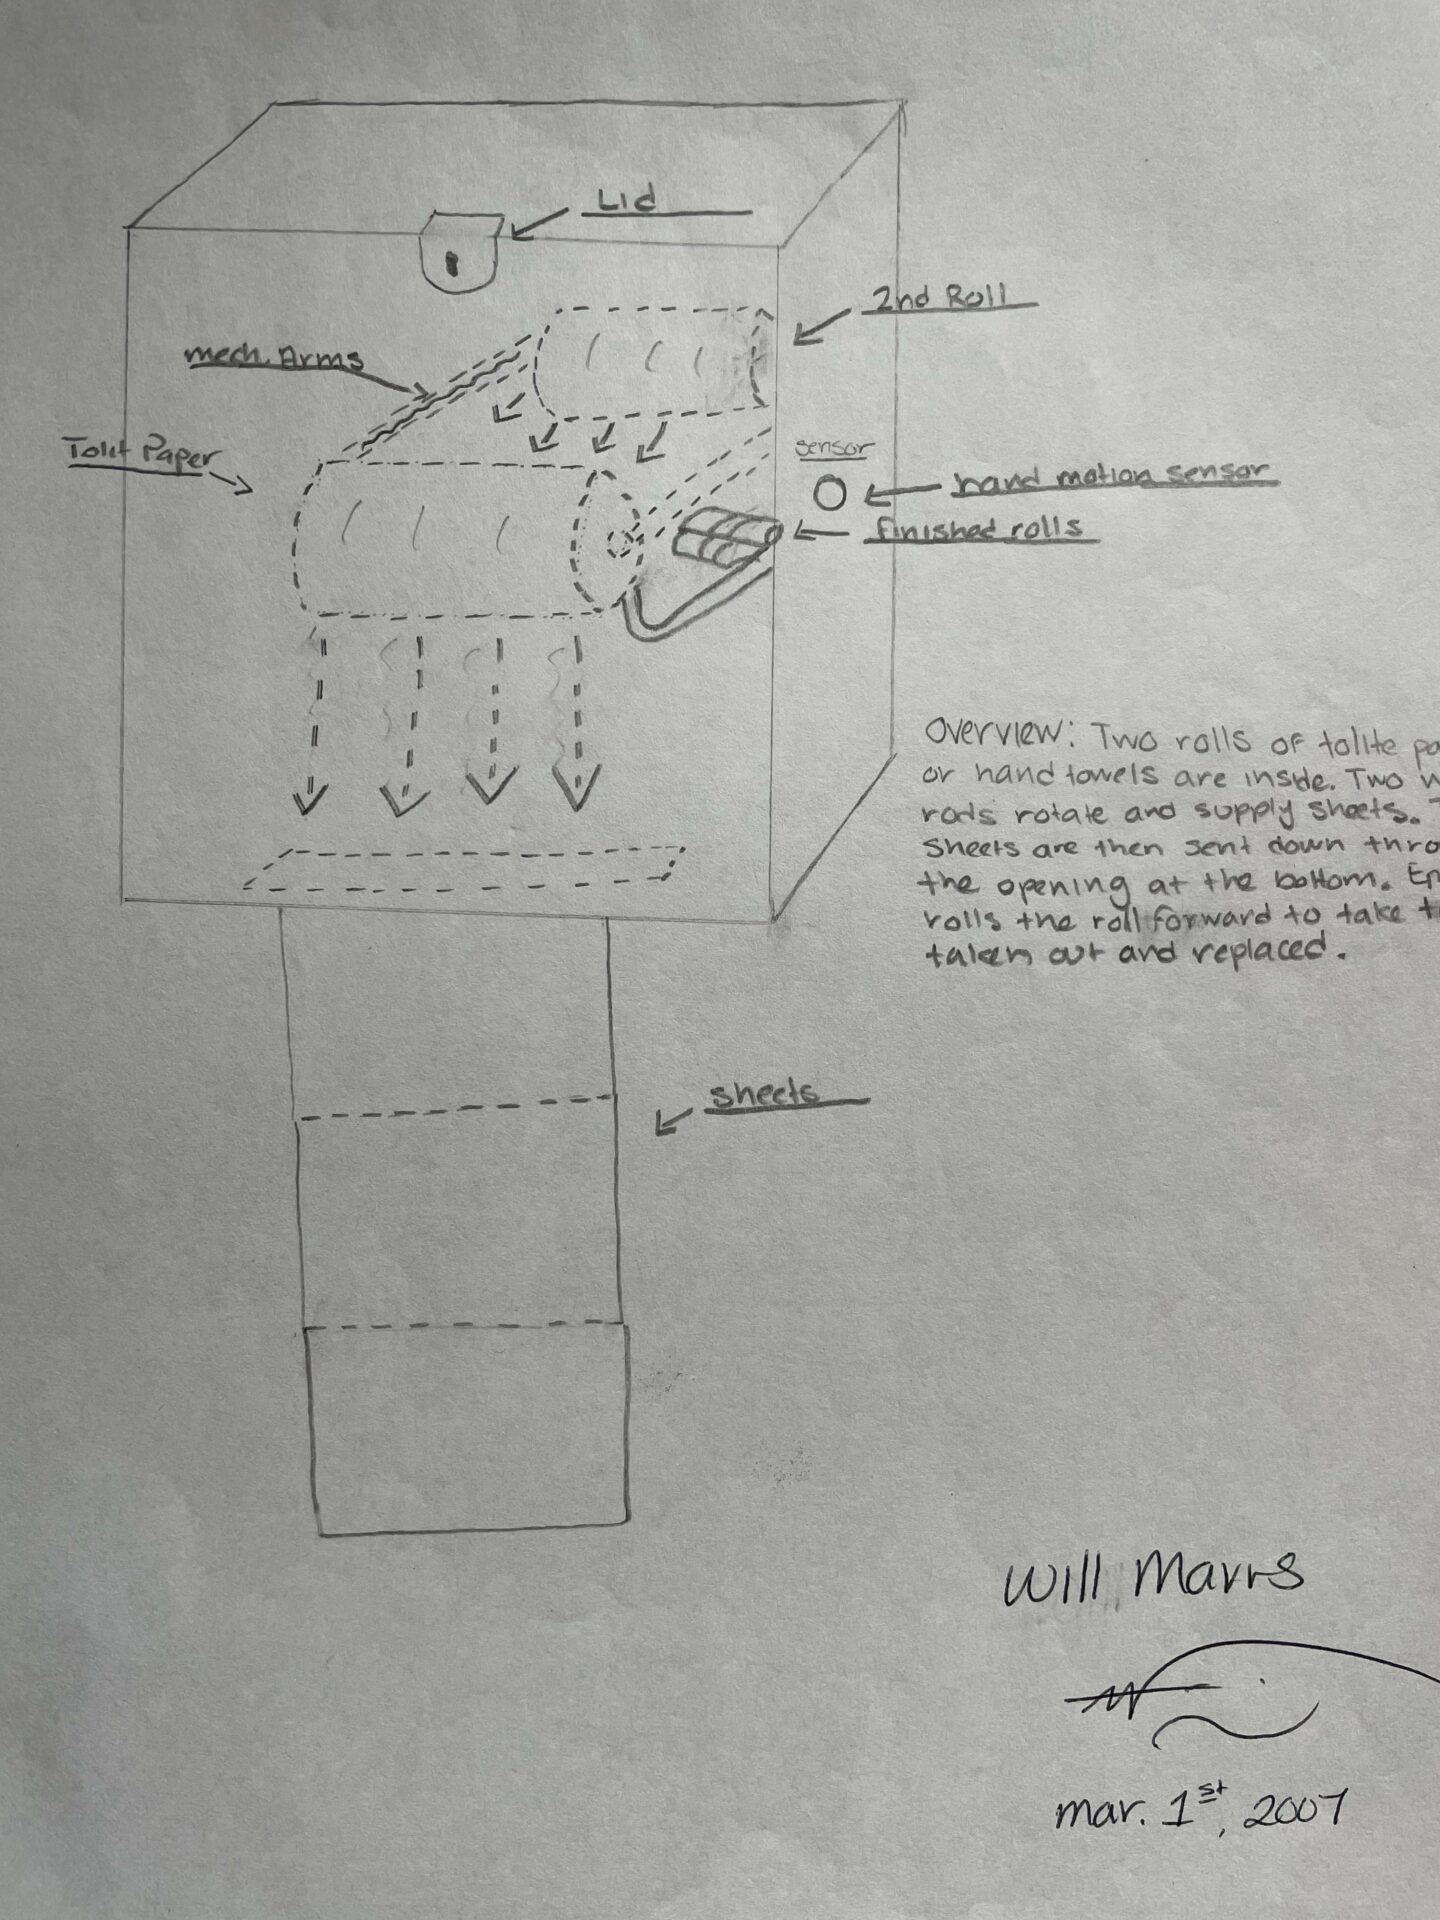 Lid
2nd Roll
mech. Arms
Tolit Paper
sensor
hand motion sensor
finished rolls
Overview: Two rolls of tolite pa
or hand towels are inside. Two w
rods rotate and supply sheets. T
Sheets are then sent down thro
the opening at the bottom. Em
rolls the roll forward to take t
taken out and replaced.
sheets
Will Marrs
mar. 1st, 2007